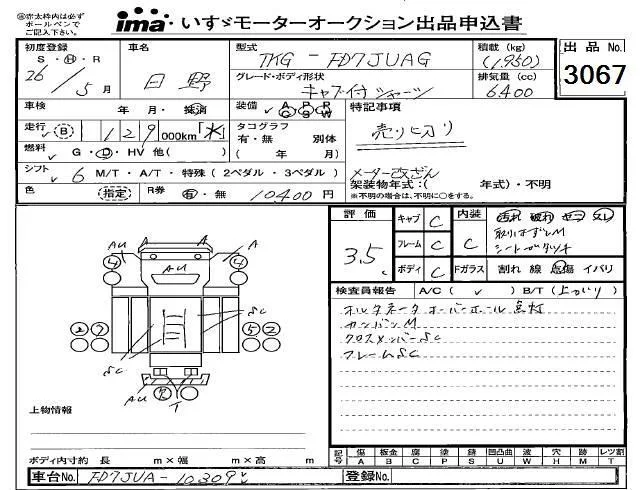 ㊟赤太枠内は必ず
ボールペンで
ご記入下さい。
ima・いすゞモーターオークション出品申込書
初度登録
S・H・R
26/5月
車名
日野
型式
TKG - FD7JUAG
グレード・ボディ形状
キャブ付シャーシ
積載 (kg)
(1,950)
排気量 (cc)
6400
出品No.
3067
車検 年・月・抹消
装備 A/C P/S P/W
特記事項
走行 (B) 129,000km「水」
タコグラフ
有・無 別体
( 年 月)
売り切り
燃料 G・D・HV 他( )
シフト 6 M/T・A/T・特殊 (2ペダル・3ペダル)
メーター改ざん
架装物年式:( 年式)・不明
※不明の場合は、不明に○をする。
色 (指定) R券 有・無 10400円
評価
3.5
キャブ C
フレーム C
ボディ C
内装
C
汚れ 破れ コゲ スレ
取りはずしM
シートガタツキ
Fガラス 割れ 線 点傷 イバリ
検査員報告 A/C ( ✓ ) B/T (上がり)
オルタネータ オーバーホール 点灯
カンバンM
クロスメンバーSC
フレームSC
AU A A A
4 AU 4
SC
2 2 5 2
SC
AU T
上物情報
ボディ内寸約 長 m×幅 m×高 m
記号 傷 板金 腐 塗 錆 凹凸曲 波 穴 跡 レツ割
A B C P S U W H M T
車台No. FD7JUA-10309
登録No.